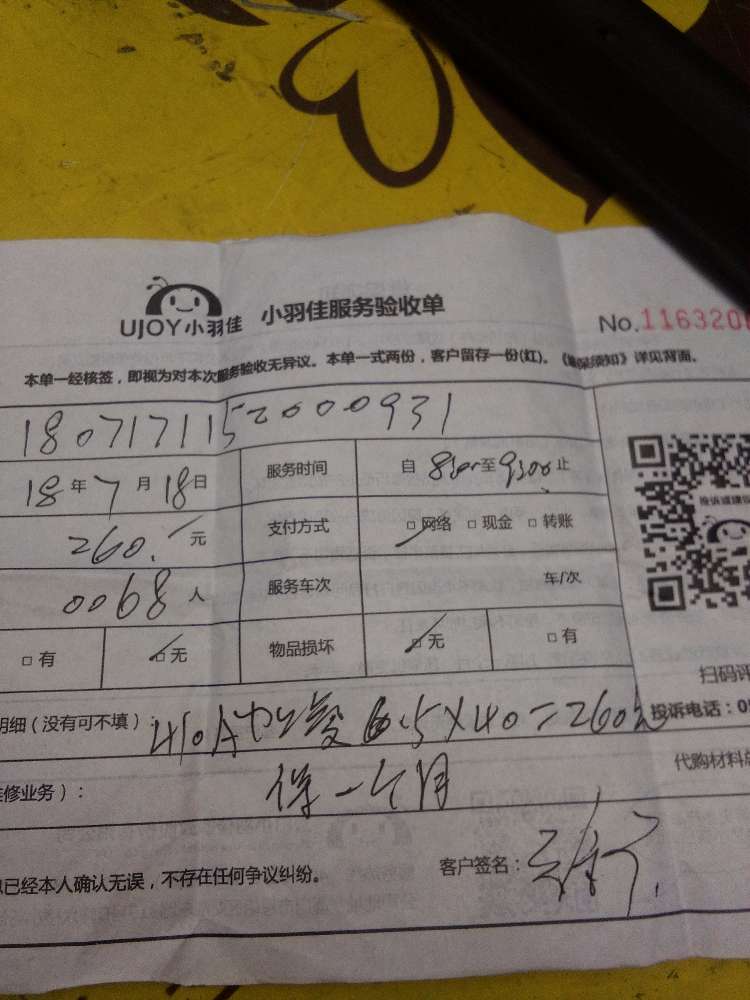 UJOY小羽佳 小羽佳服务验收单 No.1163200
本单一经核签，即视为对本次服务验收无异议。本单一式两份，客户留存一份(红)。《 须知》详见背面。
1807171152000931
18年7月18日 服务时间 自 至 止
260. 元 支付方式 □网络 □现金 □转账
0068人 服务车次 车/次
□有 □无 物品损坏 □无 □有
投诉或建议
扫码评
明细（没有可不填）： 410A 6.5×40=260元 投诉电话：05
修业务）： 保一个月 代购材料总
已经本人确认无误，不存在任何争议纠纷。 客户签名：